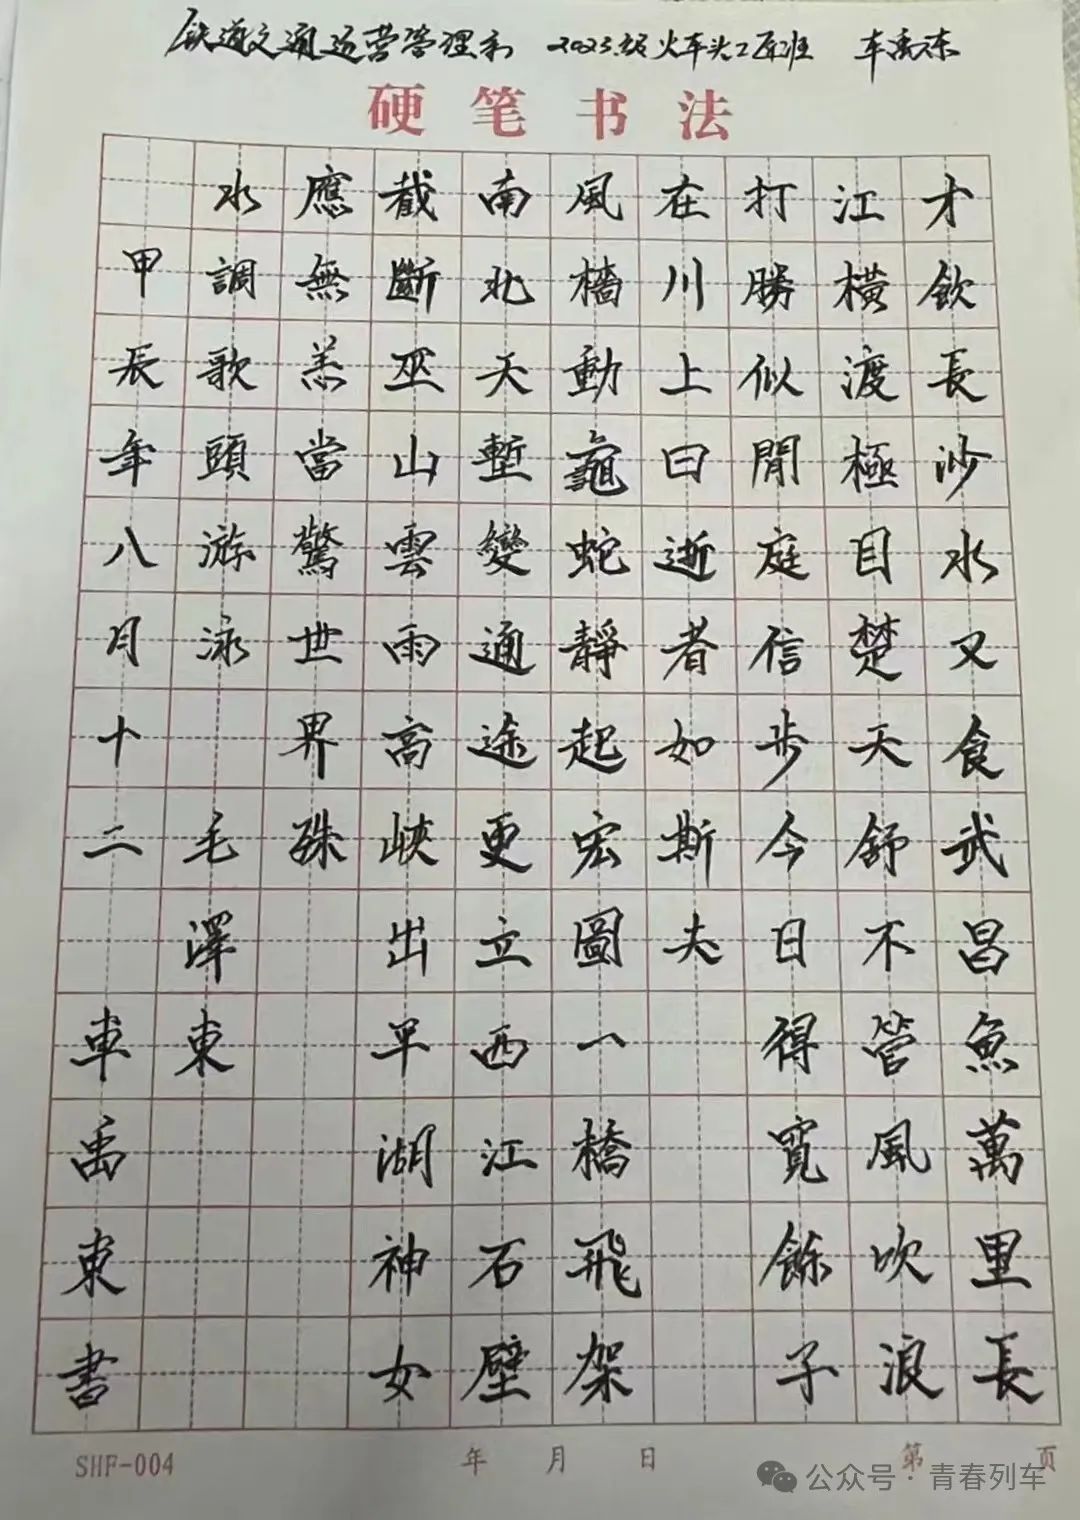 铁道交通运营管理系 2023级火车头工匠班 车禹东
硬笔书法
才飲長沙水又食武昌魚萬里長
江橫渡極目楚天舒不管風吹浪
打勝似閒庭信步今日得寬餘子
在川上曰逝者如斯夫
風檣動龜蛇靜起宏圖一橋飛架
南北天塹變通途更立西江石壁
截斷巫山雲雨高峽出平湖神女
應無恙當驚世界殊
水調歌頭游泳 毛澤東
甲辰年八月十二 車禹東書
SHF-004 年 月 日 第 页
公众号·青春列车